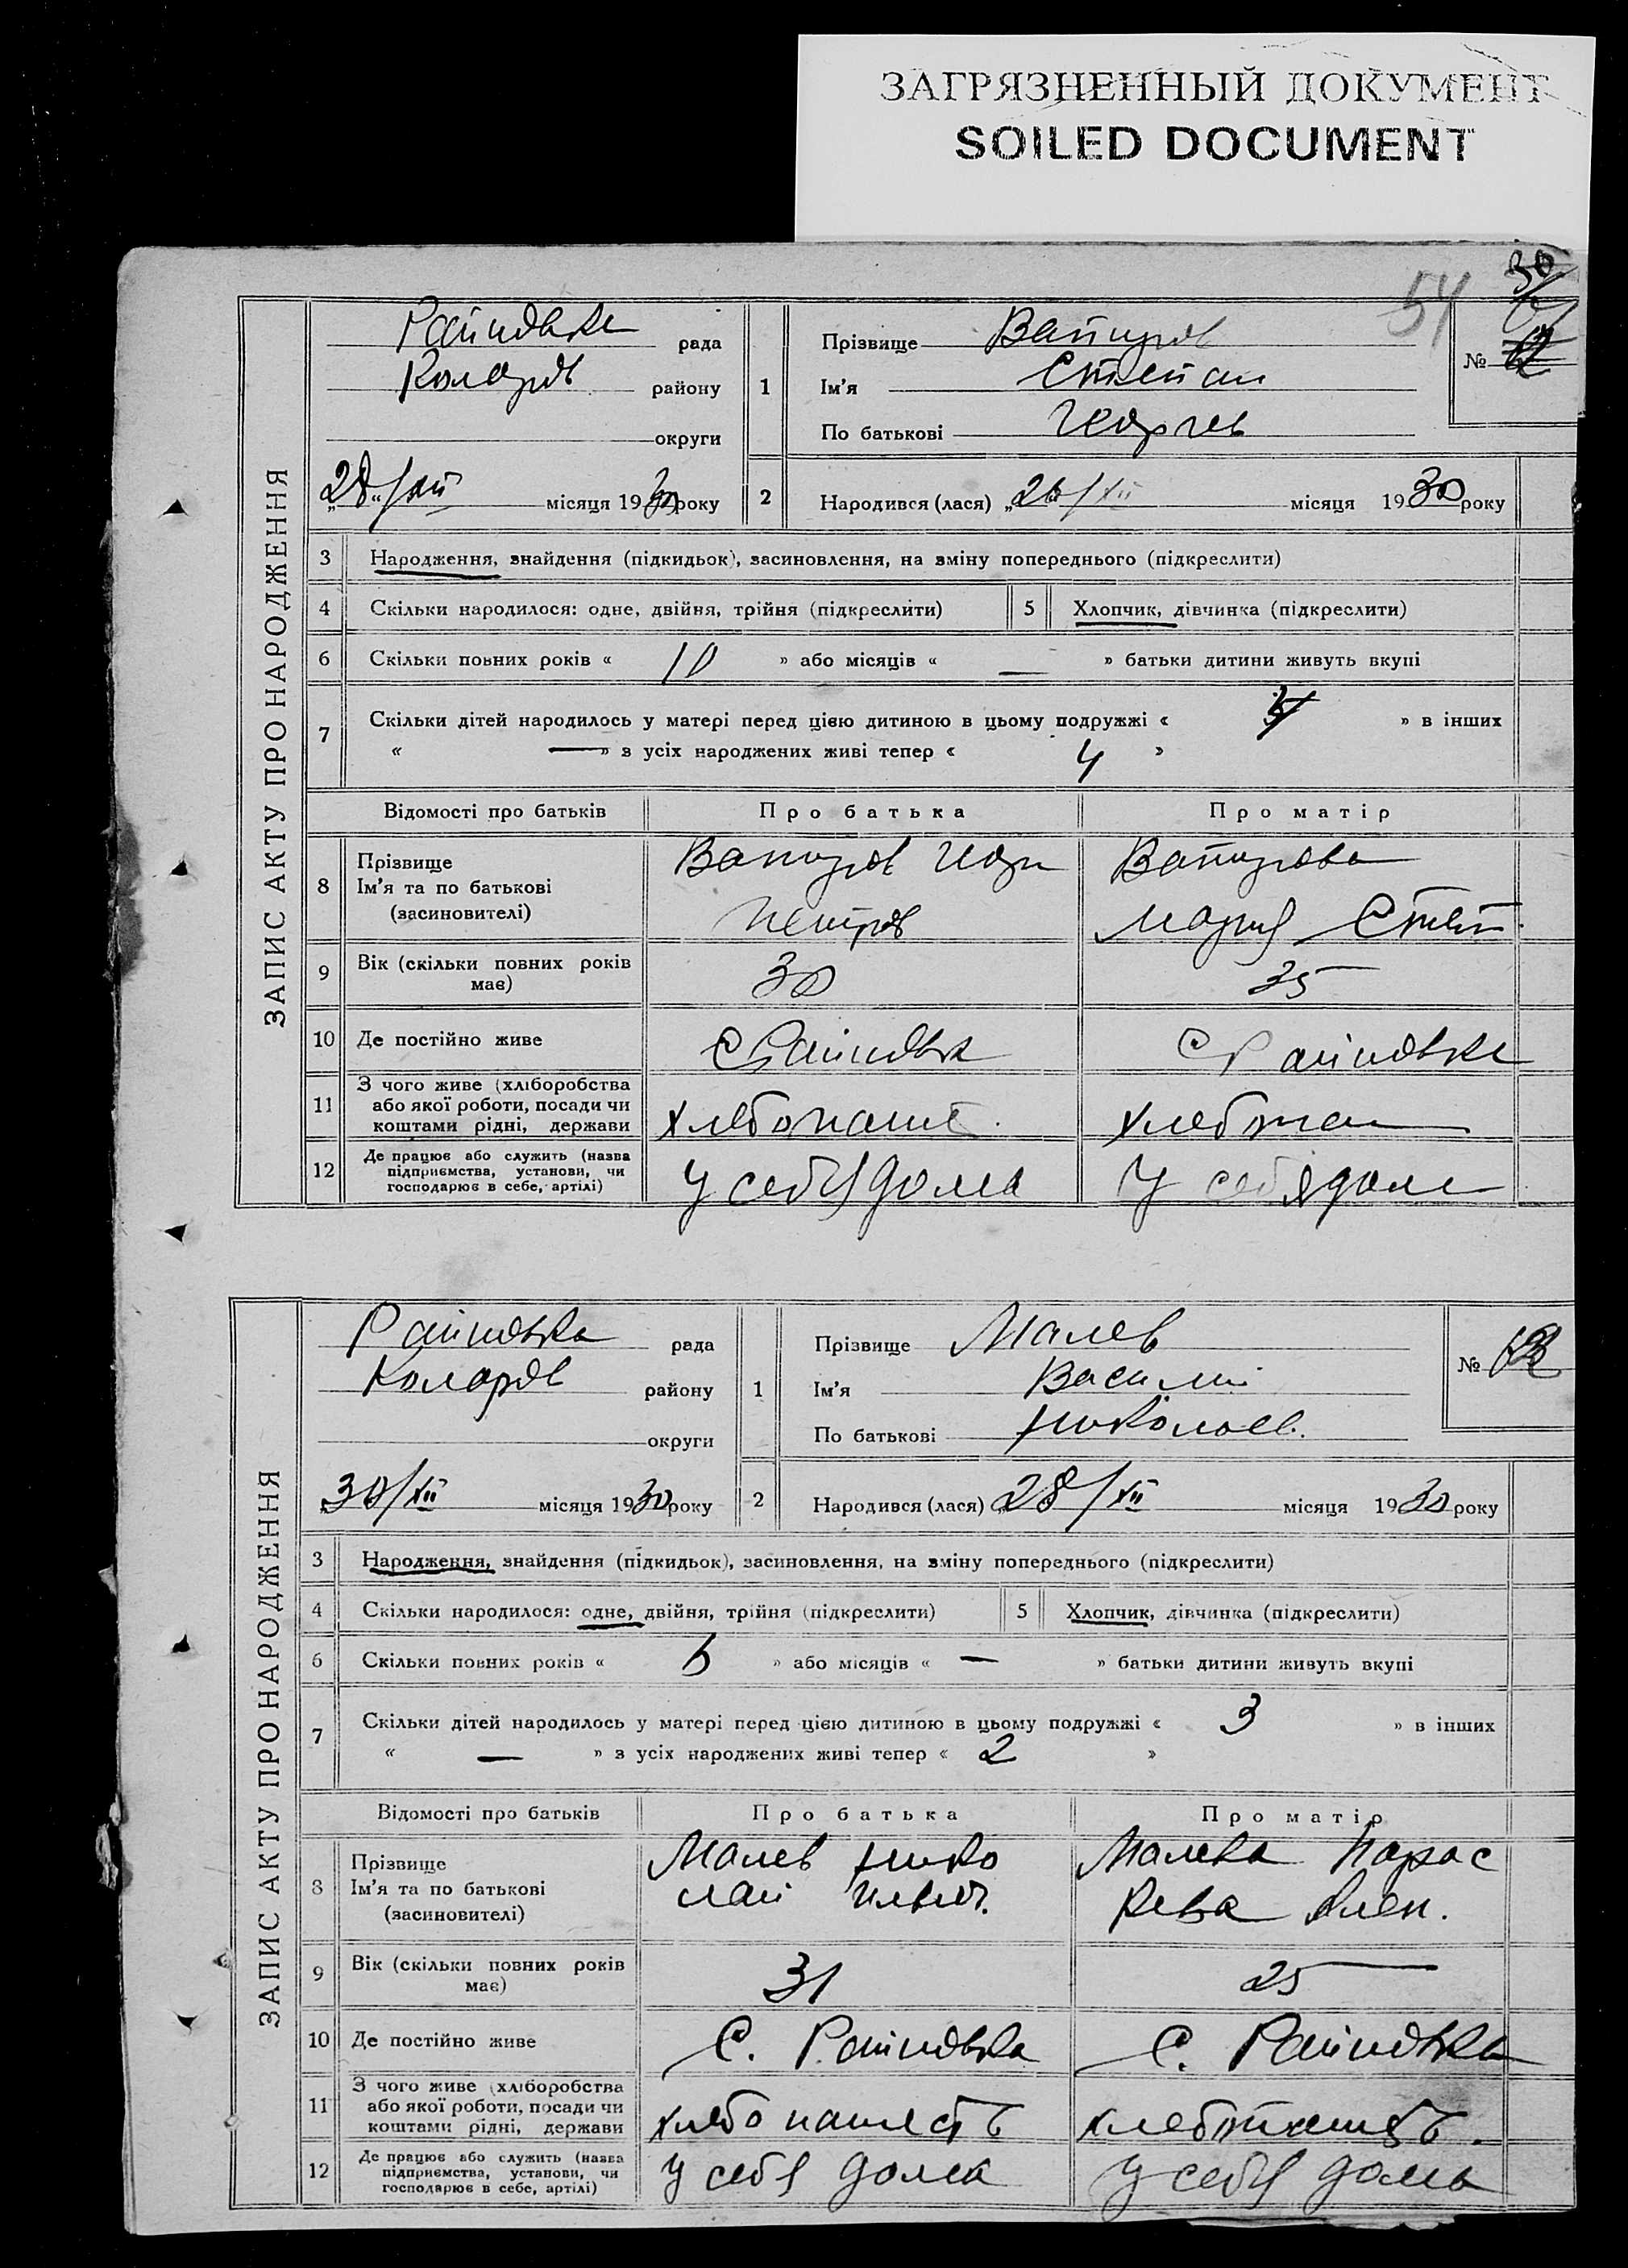 ЗАГРЯЗНЕННЫЙ ДОКУМЕНТ
SOILED DOCUMENT
54
30
ЗАПИС АКТУ ПРО НАРОДЖЕННЯ
Райновка рада
Коларов району
округи
28/XII місяця 1930 року
1
Прізвище Вапиров
Ім'я Степан
По батькові Георгиев
№
2
Народився (лася) „26/XII місяця 1930 року
3 Народження, знайдення (підкидьок), засиновлення, на зміну попереднього (підкреслити)
4 Скільки народилося: одне, двійня, трійня (підкреслити) 5 Хлопчик, дівчинка (підкреслити)
6 Скільки повних років « 10 » або місяців « — » батьки дитини живуть вкупі
7 Скільки дітей народилось у матері перед цією дитиною в цьому подружжі « » в інших
« — » з усіх народжених живі тепер « 4 »
Відомості про батьків Про батька Про матір
8 Прізвище
Ім'я та по батькові
(засиновителі)
Вапиров Геор
Петров
Вапирова
Мария Степ.
9 Вік (скільки повних років має) 30 35
10 Де постійно живе С Райновка С Райновка
11 З чого живе (хліборобства
або якої роботи, посади чи
коштами рідні, держави
хлебопаш
хлебопаш
12 Де працює або служить (назва
підприємства, установи, чи
господарює в себе, артілі)
У себя дома
У себя дома
ЗАПИС АКТУ ПРО НАРОДЖЕННЯ
Райновка рада
Коларов району
округи
30/XII місяця 1930 року
1
Прізвище Малев
Ім'я Василий
По батькові Николаев.
№
2
Народився (лася) „28/XII місяця 1930 року
3 Народження, знайдення (підкидьок), засиновлення, на зміну попереднього (підкреслити)
4 Скільки народилося: одне, двійня, трійня (підкреслити) 5 Хлопчик, дівчинка (підкреслити)
6 Скільки повних років « » або місяців « — » батьки дитини живуть вкупі
7 Скільки дітей народилось у матері перед цією дитиною в цьому подружжі « 3 » в інших
« — » з усіх народжених живі тепер « 2 »
Відомості про батьків Про батька Про матір
8 Прізвище
Ім'я та по батькові
(засиновителі)
Малев Нико
лай
Малева Парас
кева
9 Вік (скільки повних років має) 31 25
10 Де постійно живе С. Райновка С. Райновка
11 З чого живе (хліборобства
або якої роботи, посади чи
коштами рідні, держави
хлебопашеств
12 Де працює або служить (назва
підприємства, установи, чи
господарює в себе, артілі)
У себя дома
У себя дома